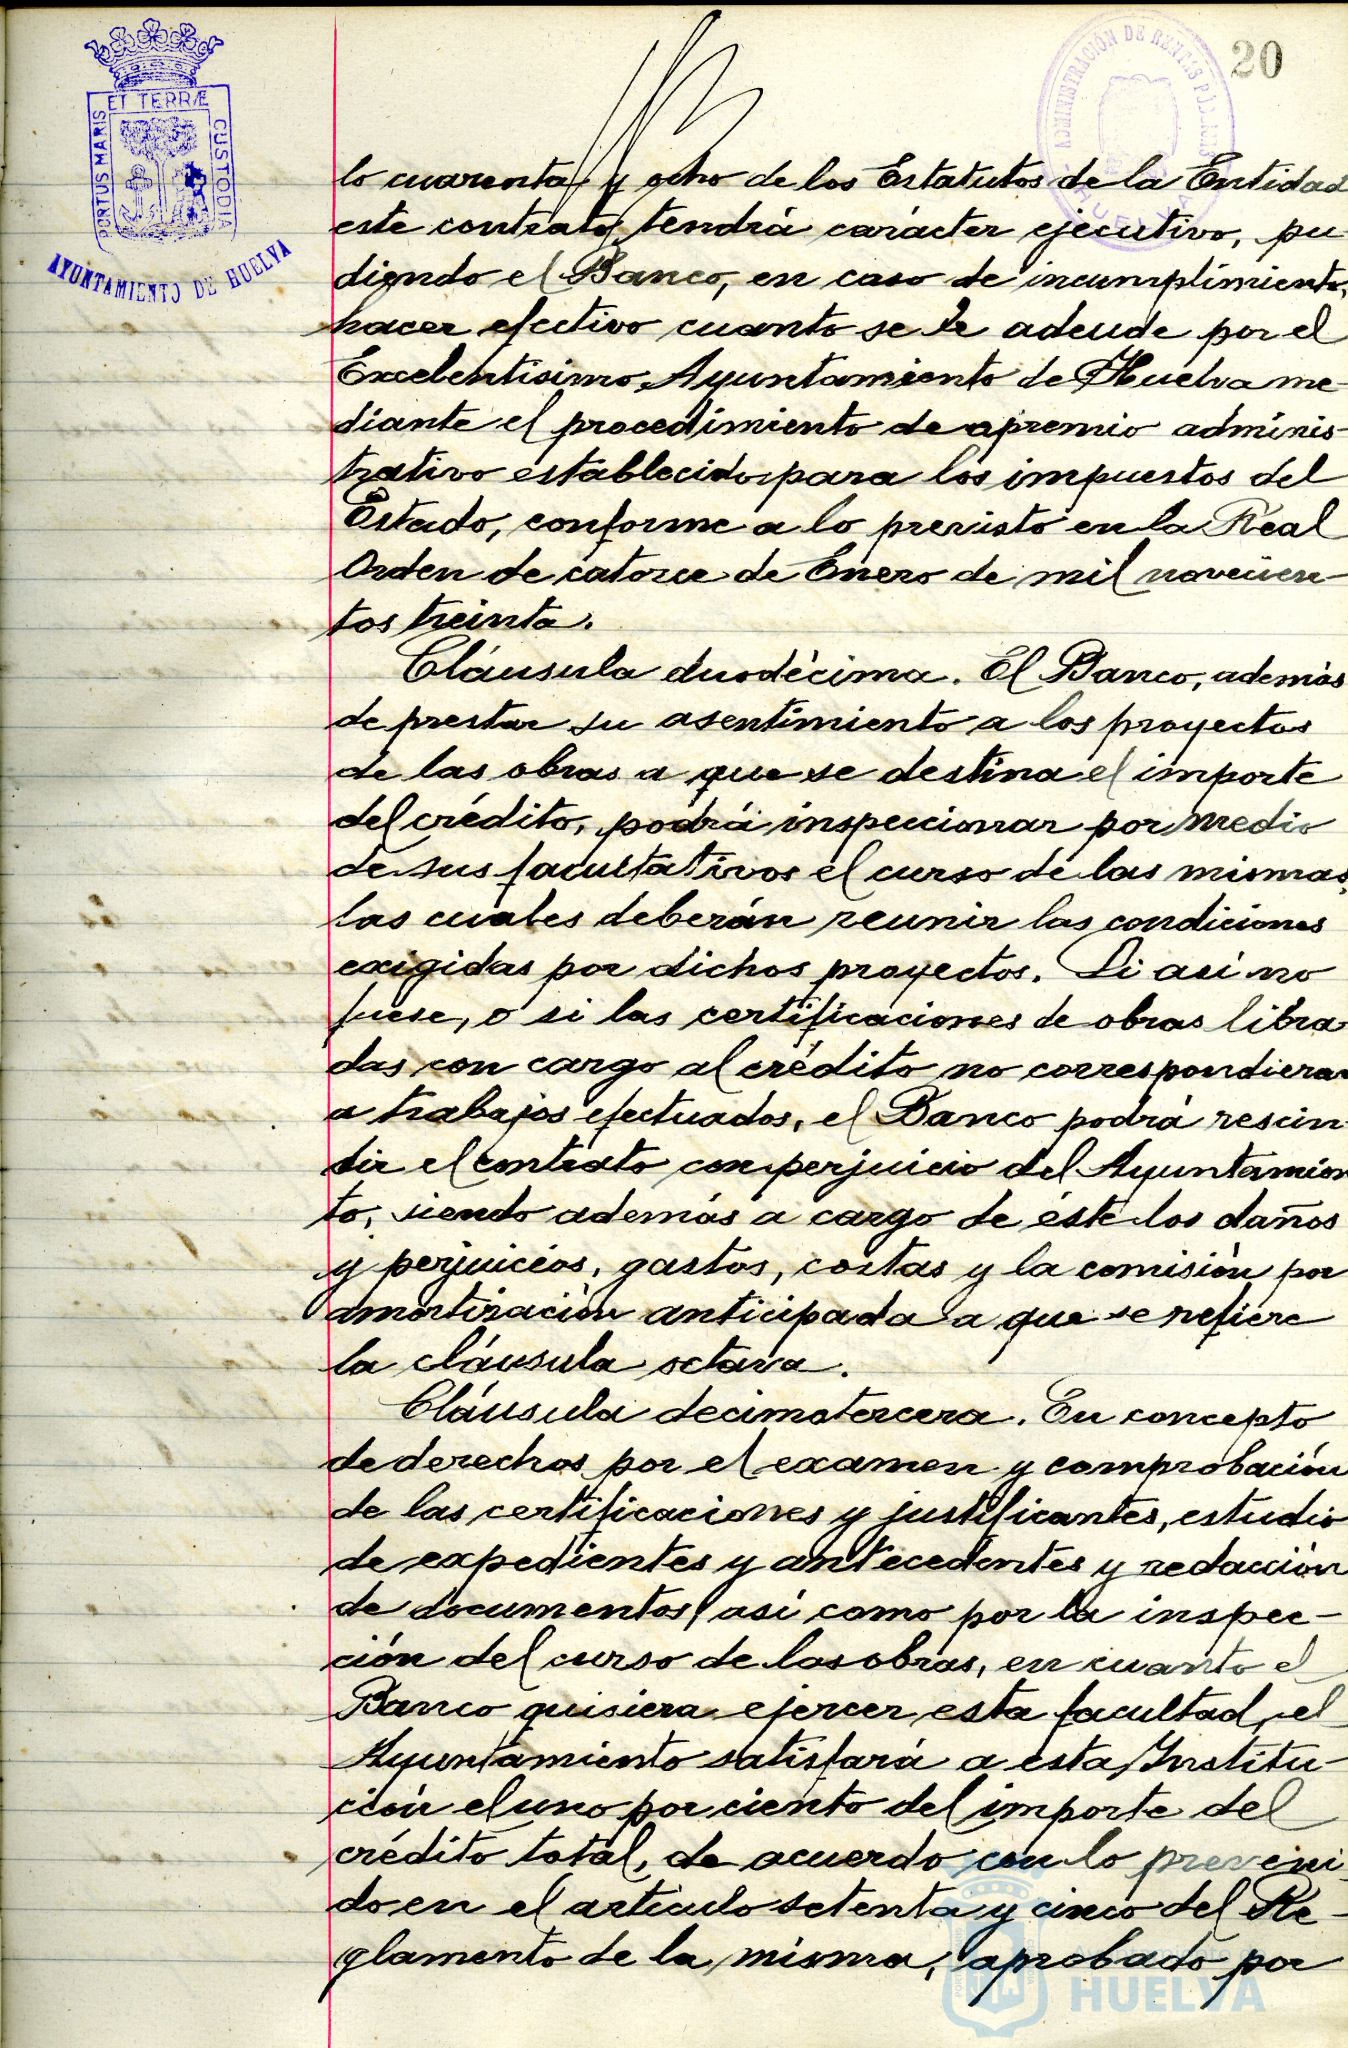 20
ET TERRÆ
PORTUS MARIS
CUSTODIA
AYUNTAMIENTO DE HUELVA
ADMINISTRACIÓN DE RENTAS PÚBLICAS
HUELVA
lo cuarenta y ocho de los Estatutos de la Entidad
este contrato tendrá carácter ejecutivo, pu-
diendo el Banco, en caso de incumplimiento,
hacer efectivo cuanto se le adeude por el
Excelentisimo Ayuntamiento de Huelva me-
diante el procedimiento de apremio adminis-
trativo establecido para los impuestos del
Estado, conforme a lo previsto en la Real
Orden de catorce de Enero de mil novecien-
tos treinta.
Cláusula duodécima. El Banco, además
de prestar su asentimiento a los proyectos
de las obras a que se destina el importe
del crédito, podrá inspeccionar por medio
de sus facultativos el curso de las mismas,
las cuales deberán reunir las condiciones
exigidas por dichos proyectos. Si asi no
fuese, o si las certificaciones de obras libra-
das con cargo al crédito no correspondieran
a trabajos efectuados, el Banco podrá rescin-
dir el contrato con perjuicio del Ayuntamien-
to, siendo además a cargo de éste los daños
y perjuicios, gastos, costas y la comisión por
amortización anticipada a que se refiere
la cláusula octava.
Cláusula decimotercera. En concepto
de derechos por el examen y comprobación
de las certificaciones y justificantes, estudio
de expedientes y antecedentes y redacción
de documentos, asi como por la inspec-
ción del curso de las obras, en cuanto el
Banco quisiera ejercer esta facultad, el
Ayuntamiento satisfará a esta Institu-
ción el uno por ciento del importe del
crédito total, de acuerdo con lo preveni-
do en el articulo setenta y cinco del Re-
glamento de la misma, aprobado por
HUELVA